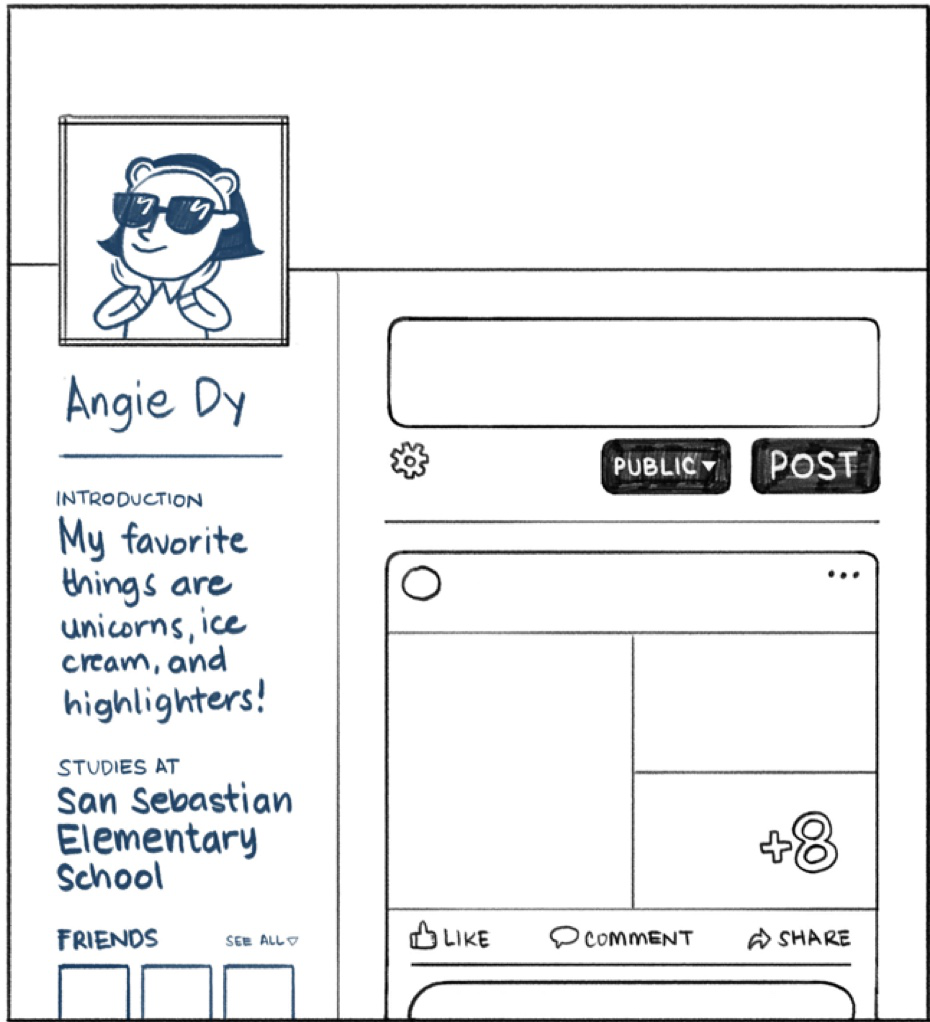 Angie Dy
INTRODUCTION
My favorite
things are
unicorns, ice
cream, and
highlighters!
STUDIES AT
San Sebastian
Elementary
School
FRIENDS SEE ALL
PUBLIC POST
+8
LIKE COMMENT SHARE